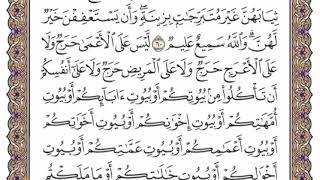 ثِيَابَهُنَّ غَيْرَ مُتَبَرِّجَٰتٍۭ بِزِينَةٍ ۖ وَأَن يَسْتَعْفِفْنَ خَيْرٌ
لَّهُنَّ ۗ وَٱللَّهُ سَمِيعٌ عَلِيمٌ ٦٠ لَّيْسَ عَلَى ٱلْأَعْمَىٰ حَرَجٌ وَلَا
عَلَى ٱلْأَعْرَجِ حَرَجٌ وَلَا عَلَى ٱلْمَرِيضِ حَرَجٌ وَلَا عَلَىٰٓ أَنفُسِكُمْ
أَن تَأْكُلُوا۟ مِنۢ بُيُوتِكُمْ أَوْ بُيُوتِ ءَابَآئِكُمْ أَوْ بُيُوتِ
أُمَّهَٰتِكُمْ أَوْ بُيُوتِ إِخْوَٰنِكُمْ أَوْ بُيُوتِ أَخَوَٰتِكُمْ
أَوْ بُيُوتِ أَعْمَٰمِكُمْ أَوْ بُيُوتِ عَمَّٰتِكُمْ أَوْ بُيُوتِ
أَخْوَٰلِكُمْ أَوْ بُيُوتِ خَٰلَٰتِكُمْ أَوْ مَا مَلَكْتُم